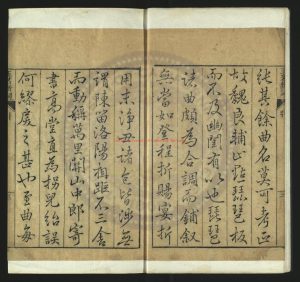 其餘曲名莫可考正
故魏良輔止點琵琶板
而不及幽閨有以也琵琶
諸曲頗為合調而鋪叙
無當如登程折賜宴折
用末淨丑諸色皆涉無
謂陳留洛陽相距不三舍
而動稱萬里關山中郎寄
書高堂直為拐兒紿誤
何繆戾之甚也至曲每